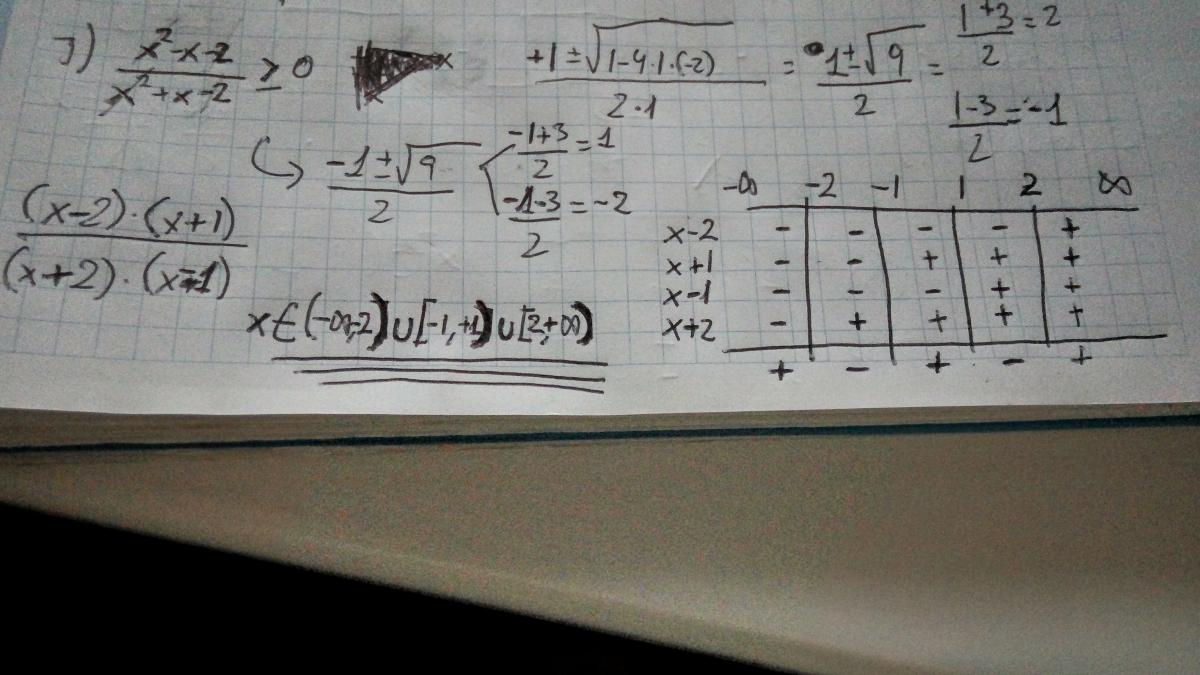 J) x²-x-2 / x²+x-2 ≥ 0
+1±√1-4·1·(-2) / 2·1 = 1±√9 / 2 =
1+3 / 2 = 2
1-3 / 2 = -1
-1±√9 / 2
-1+3 / 2 = 1
-1-3 / 2 = -2
(x-2)·(x+1) / (x+2)·(x-1)
-∞ -2 -1 1 2 ∞
x-2 - - - - +
x+1 - - + + +
x-1 - - - + +
x+2 - + + + +
+ - + - +
x∈(-∞,-2)∪[-1,+1)∪[2,+∞)